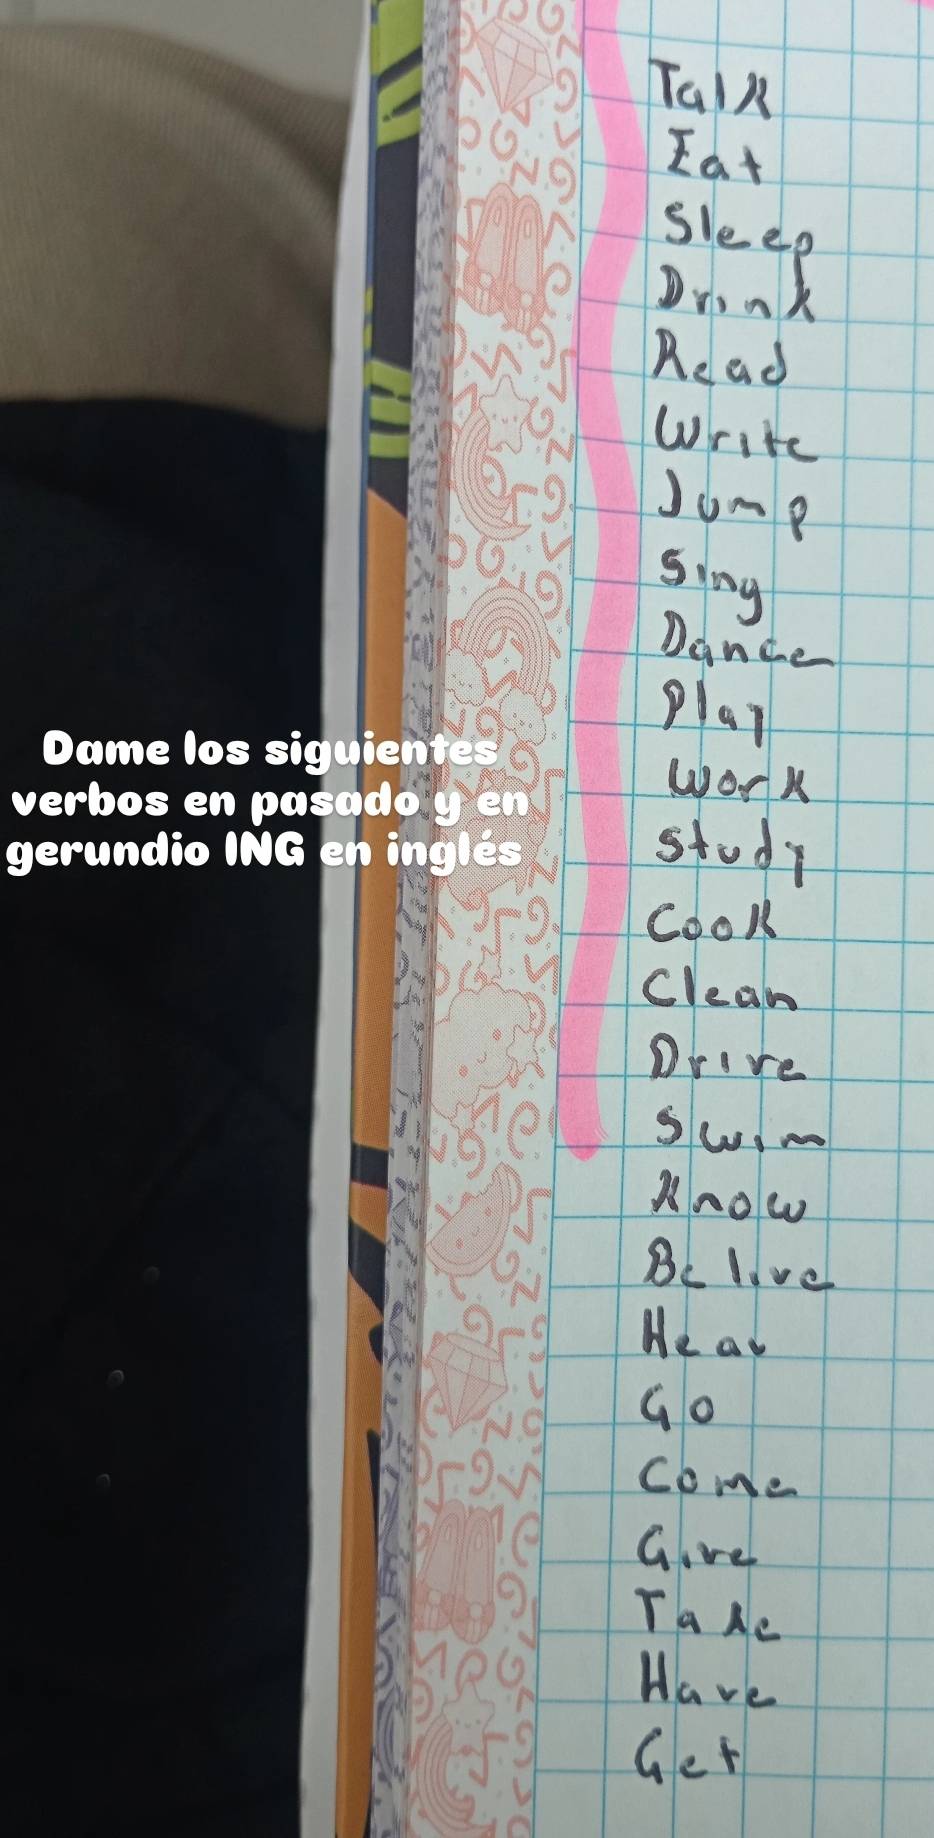 Talk
Eat
Sleep
Drink
Read
Write
Jump
Sing
Dance
Play
Work
Study
Cook
Clean
Drive
Swim
Know
Belive
Hear
Go
Come
Give
Take
Have
Get
Dame los siguientes
verbos en pasado y en
gerundio ING en inglés